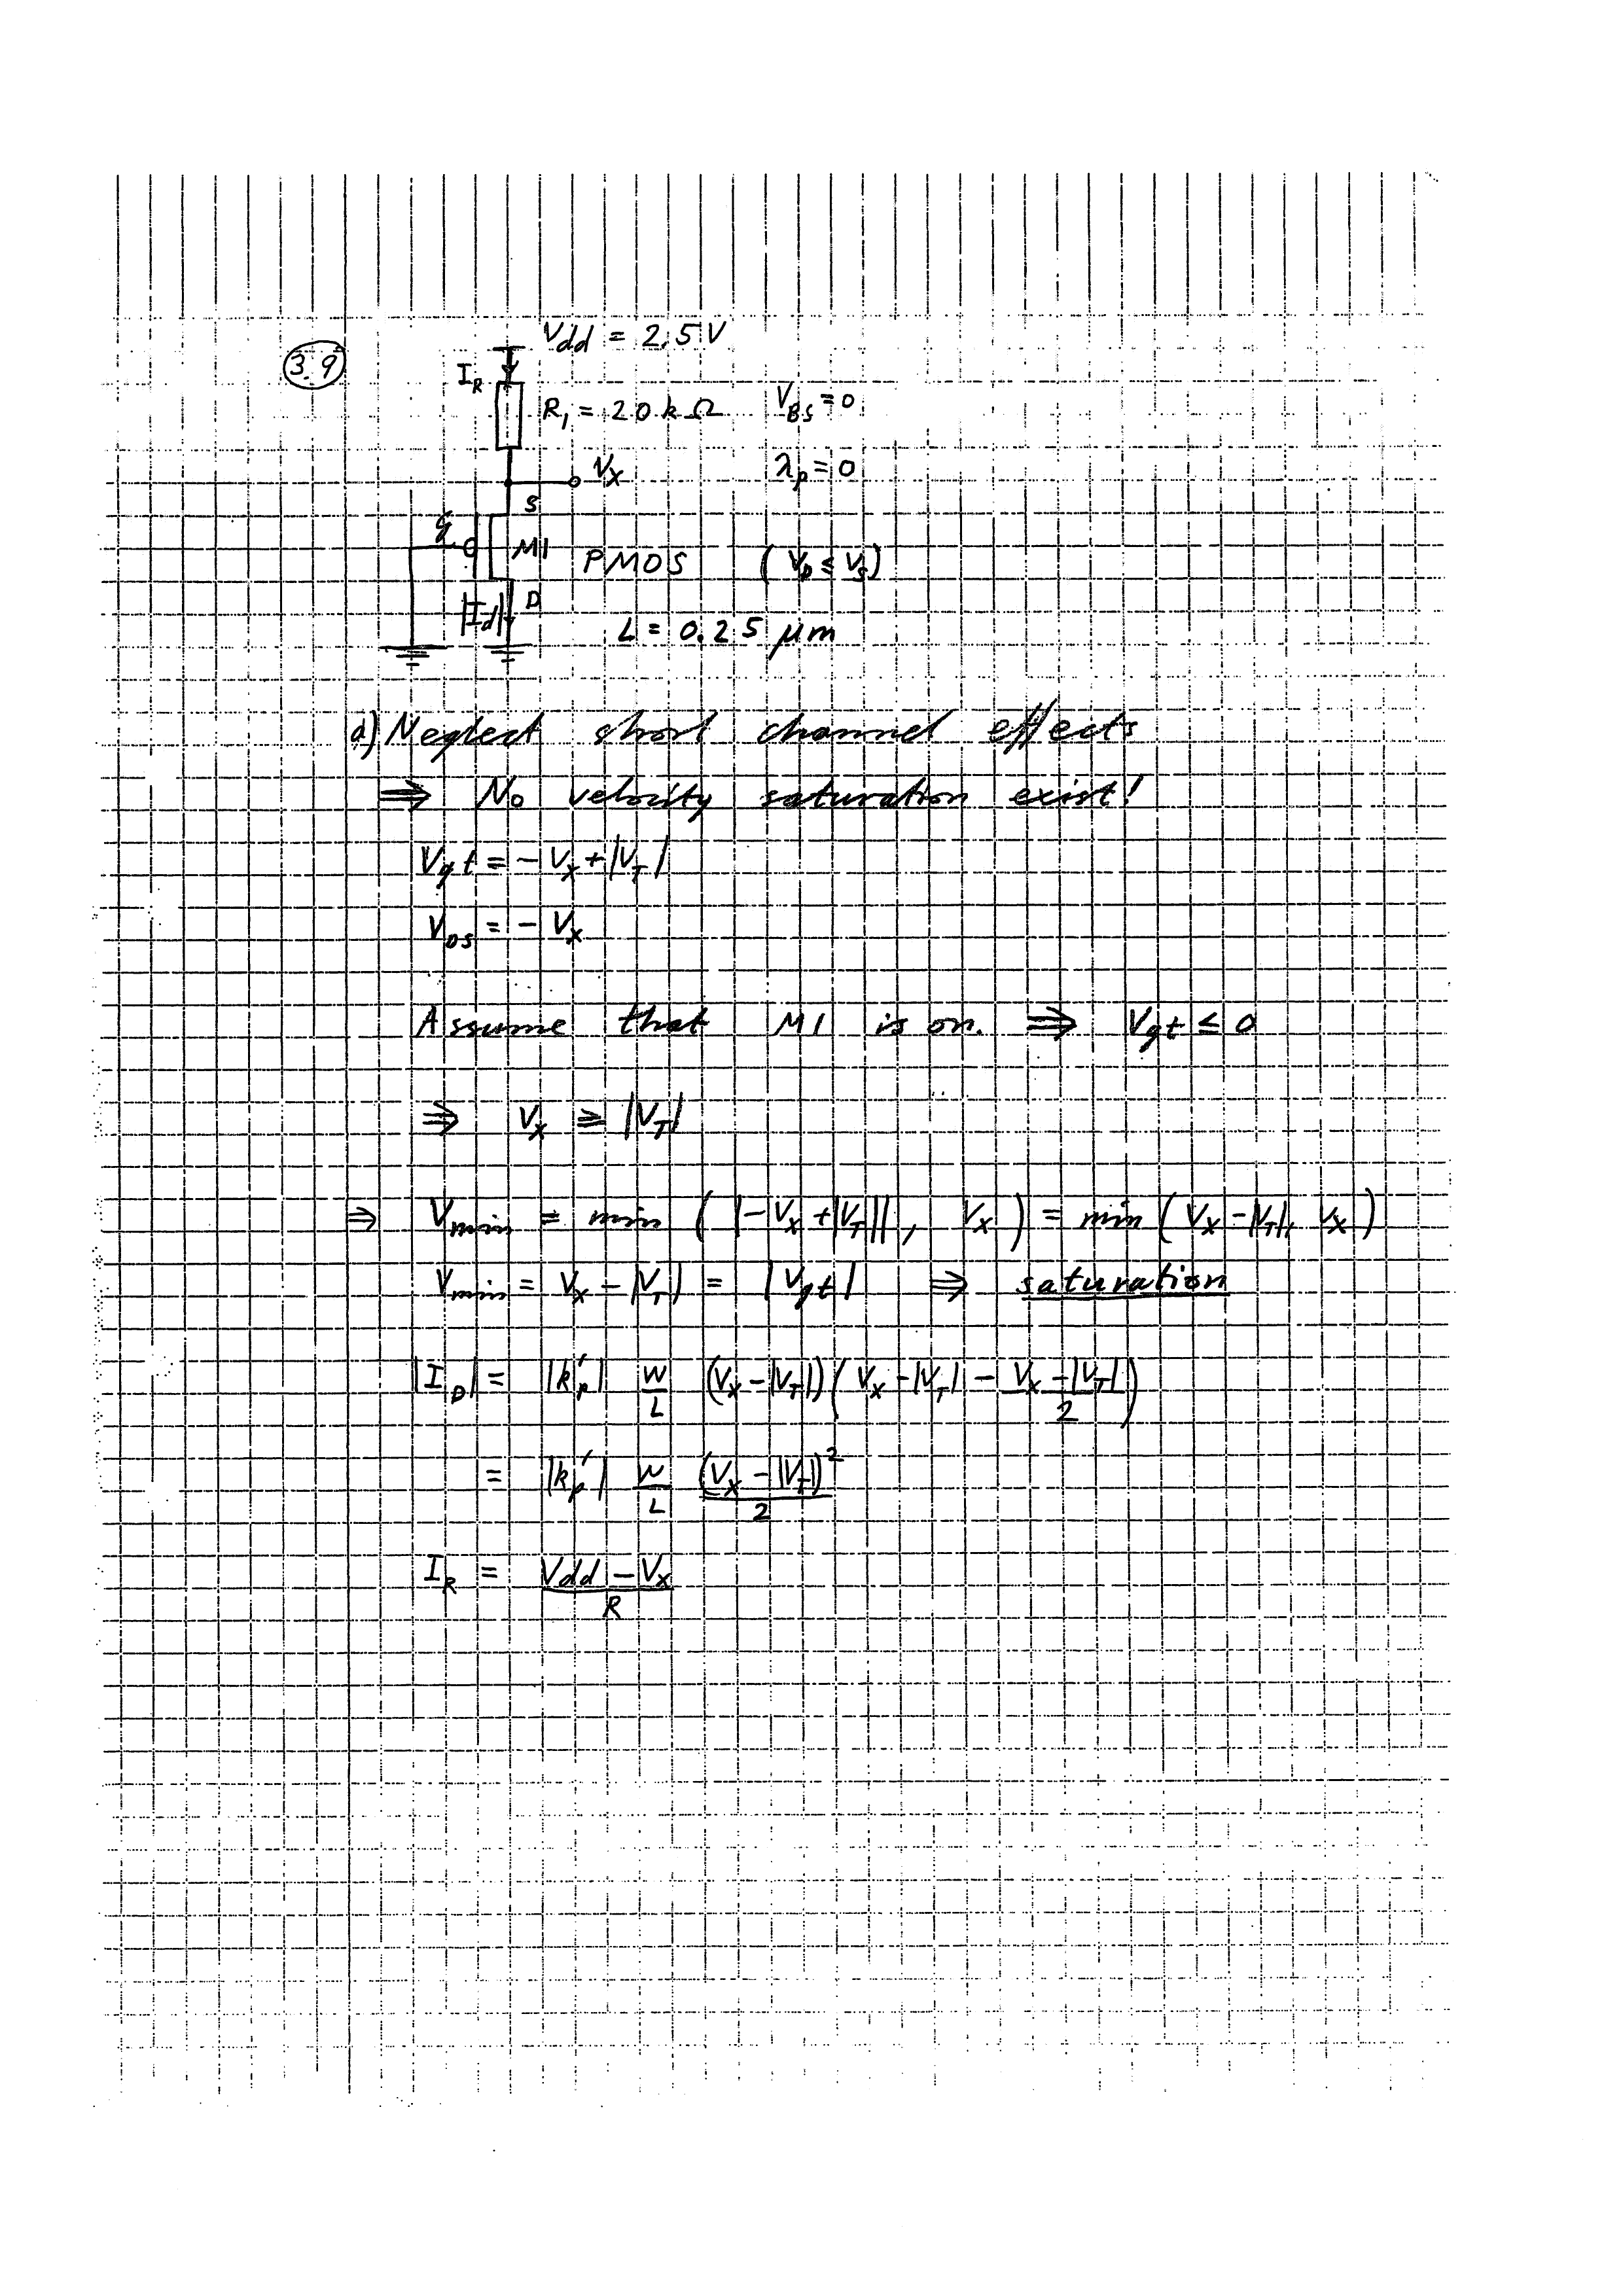 3.9
Vdd = 2,5V
I_R
R_1 = 20 kΩ V_BS = 0
V_X λ_p = 0
S
g M1 PMOS (V_D ≤ V_S)
|I_d| D
L = 0.25 μm
a) Neglect short channel effects
⇒ No velocity saturation exist!
V_gt = - V_X + |V_T|
V_DS = - V_X
Assume that M1 is on. ⇒ V_gt ≤ 0
⇒ V_X ≥ |V_T|
⇒ V_min = min ( |-V_X + |V_T||, V_X ) = min ( V_X - |V_T|, V_X )
V_min = V_X - |V_T| = |V_gt| ⇒ saturation
|I_D| = |k'_p| W/L (V_X - |V_T|) ( V_X - |V_T| - (V_X - |V_T|)/2 )
= |k'_p| W/L (V_X - |V_T|)²/2
I_R = (Vdd - V_X)/R